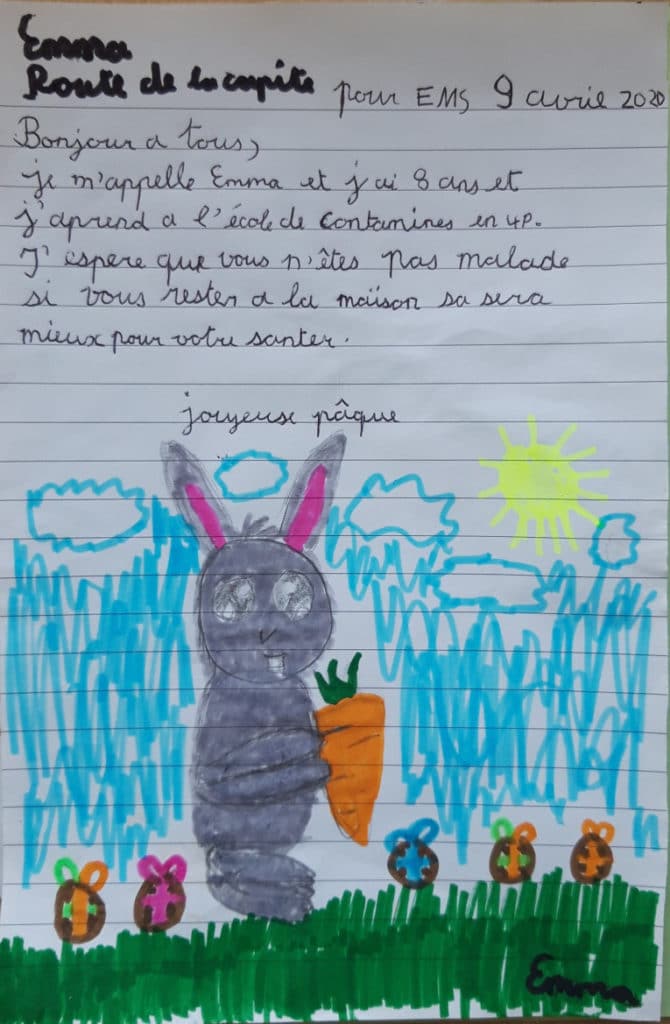 Emma
Route de la capite pour EMS 9 avrie 2020
Bonjour a tous,
je m'appelle Emma et j'ai 8 ans et
j'aprend a l'école de Contamines en 4P.
J'espere que vous n'êtes pas malade
si vous rester a la maison sa sera
mieux pour votre santer.
joyeuse pâque
Emma